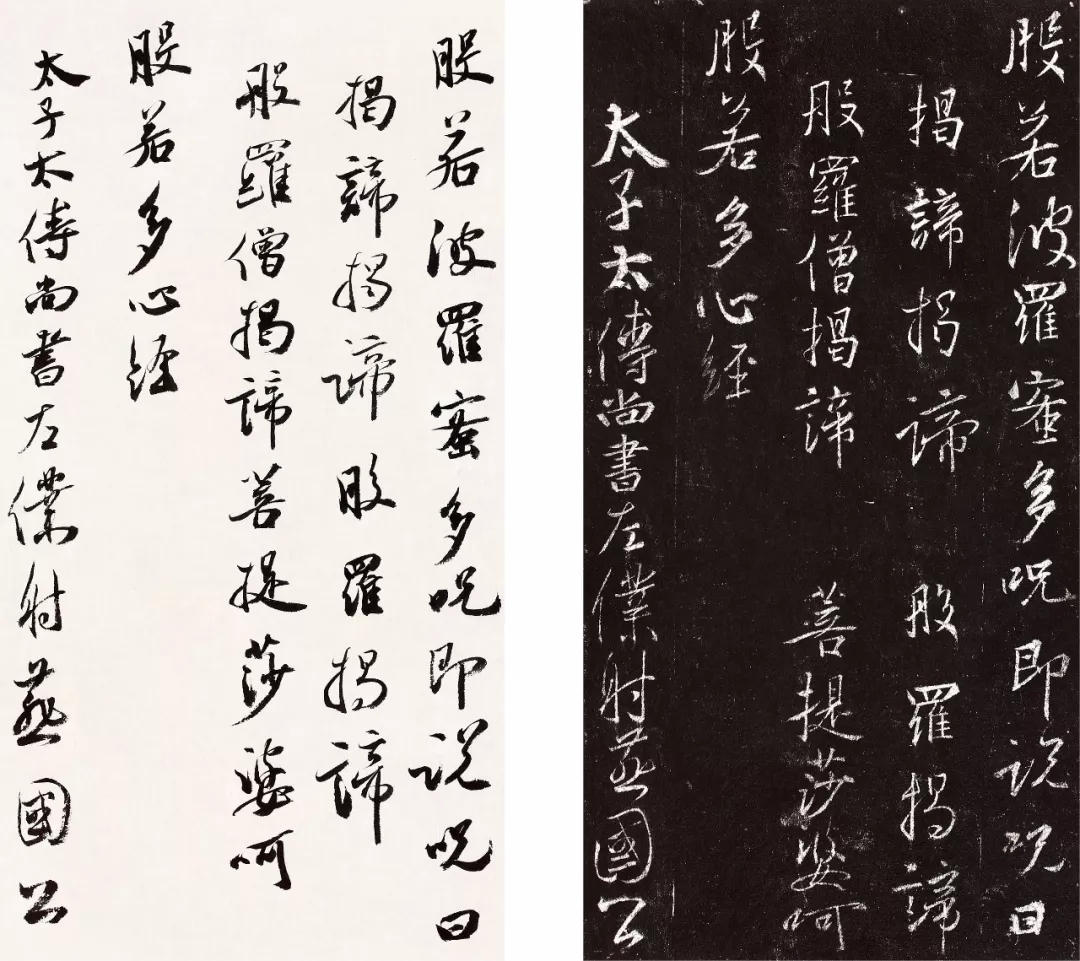 般若波羅蜜多呪即说呪曰
揭諦揭諦般羅揭諦
般羅僧揭諦菩提莎婆呵
般若多心経
太子太傅尚書左僕射燕國公
般若波羅蜜多呪即说呪曰
揭諦揭諦 般羅揭諦
般羅僧揭諦 菩提莎婆呵
般若多心経
太子太傅尚書左僕射燕國公